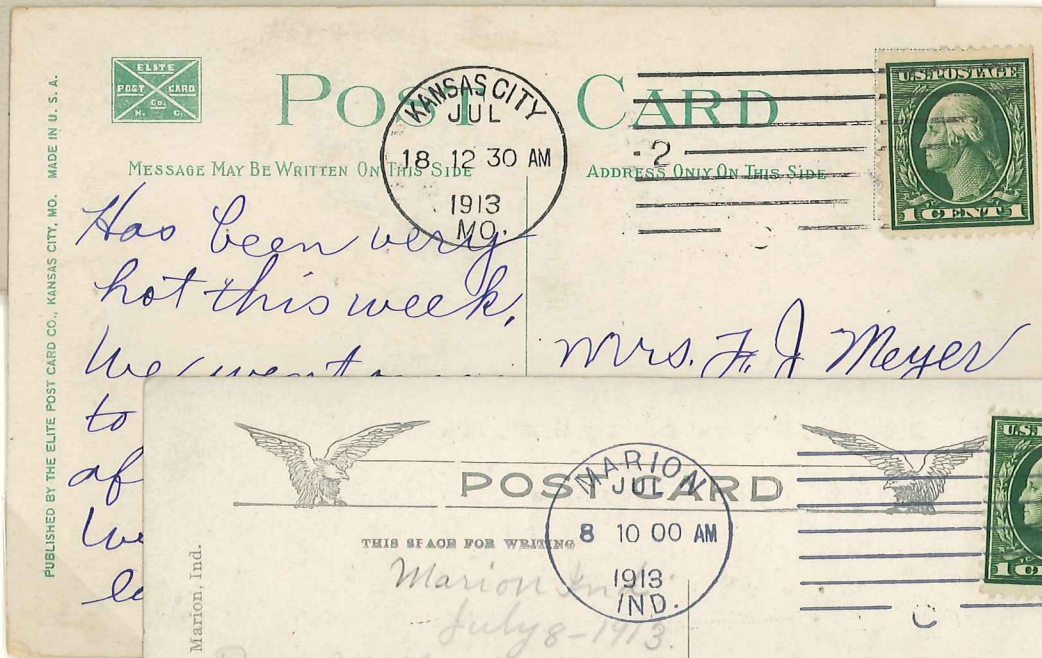 PUBLISHED BY THE ELITE POST CARD CO., KANSAS CITY, MO. MADE IN U. S. A.
ELITE
POST CARD
Co.
K. C.
POST CARD
KANSAS CITY
JUL
18 12 30 AM
1913
MO.
2
U.S. POSTAGE
1 CENT 1
MESSAGE MAY BE WRITTEN ON THIS SIDE
ADDRESS ONLY ON THIS SIDE
Has been very
hot this week,
We went
to
af
We
Mrs. F. J Meyer
POST CARD
MARION
JUL
8 10 00 AM
1913
IND.
THIS SPACE FOR WRITING
Marion Ind.
July 8-1913.
Marion, Ind.
U.S.
1 C